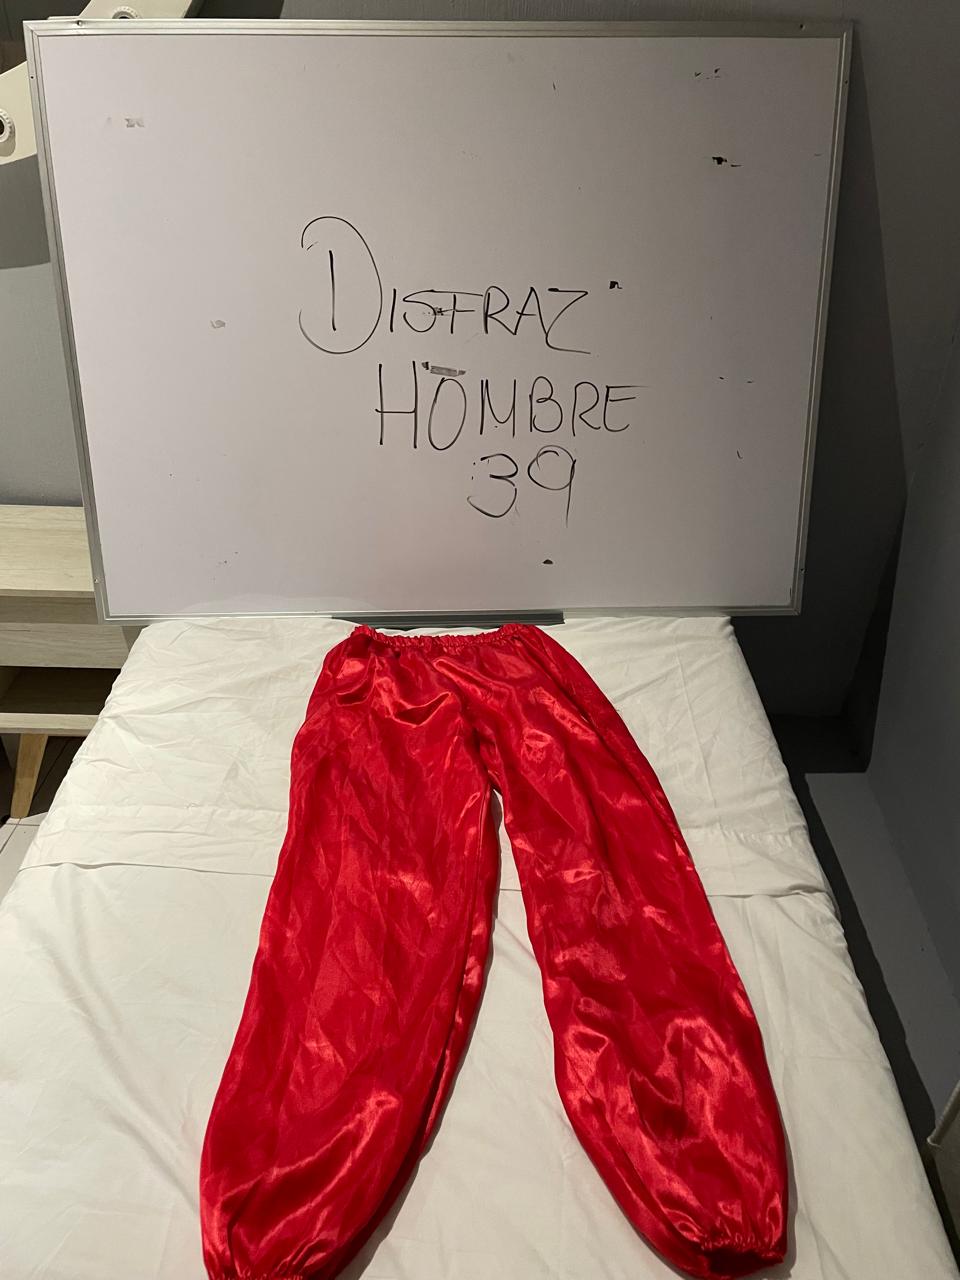 DISFRAZ
HOMBRE
39